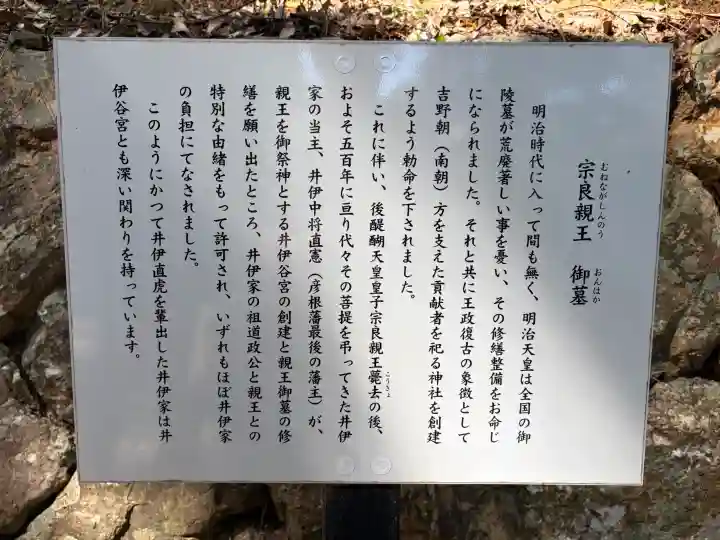 宗良親王　御墓
むねながしんのう　おんはか
明治時代に入って間も無く、明治天皇は全国の御
陵墓が荒廃著しい事を憂い、その修繕整備をお命じ
になられました。それと共に王政復古の象徴として
吉野朝（南朝）方を支えた貢献者を祀る神社を創建
するよう勅命を下されました。
これに伴い、後醍醐天皇皇子宗良親王薨去の後、
こうきょ
およそ五百年に亘り代々その菩提を弔ってきた井伊
家の当主、井伊中将直憲（彦根藩最後の藩主）が、
親王を御祭神とする井伊谷宮の創建と親王御墓の修
繕を願い出たところ、井伊家の祖道政公と親王との
特別な由緒をもって許可され、いずれもほぼ井伊家
の負担にてなされました。
このようにかつて井伊直虎を輩出した井伊家は井
伊谷宮とも深い関わりを持っています。